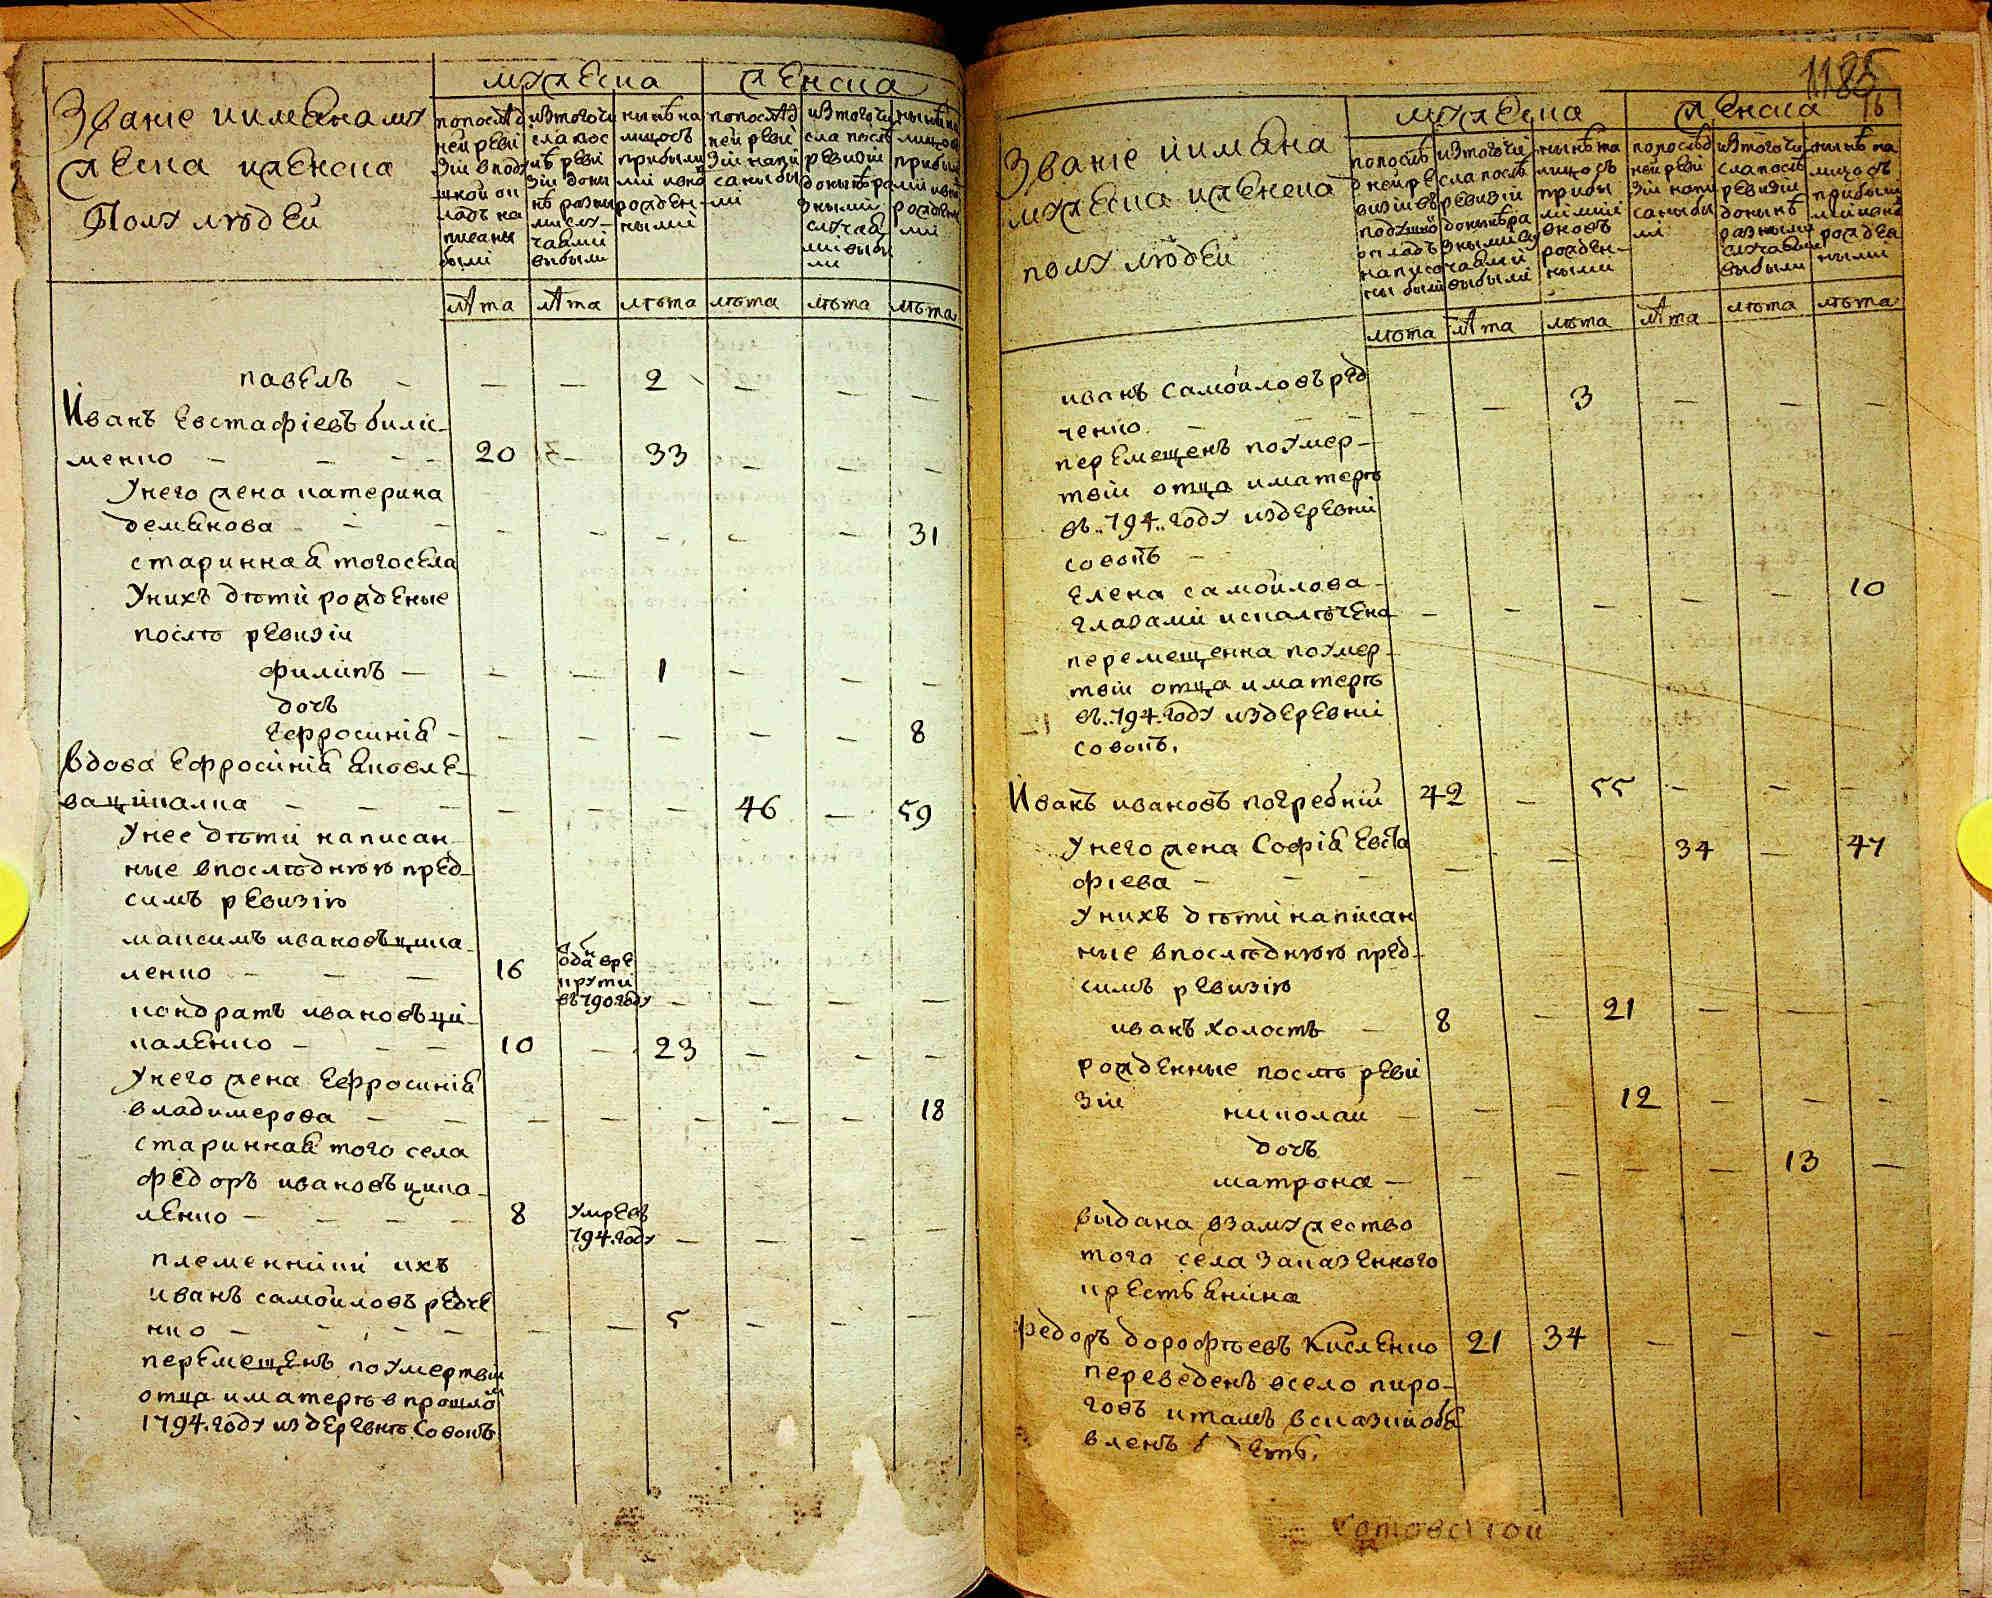 Званіе иимянамУ
жеска иженска
Полу людей
мужеска
женска
попослѣд
ней реви
зіи вподу
шной оп
ладъ на
писаны
были
изтогочи
сла пос
лѣ реви
зіи доны
нѣ разны
ми слу-
чаями
выбыли
нынѣ на
лицосъ
прибылы
ми ивно
рожден-
ными
попослѣд
ней реви
зіи напи
саны бы
ли
изтогочи
сла послѣ
ревизіи
донынѣ ра
зными
случая
ми выбы
ли
нынѣ на
лицо съ
прибыл
ми ивно
рожден
ми
лѣта лѣта лѣта лѣта лѣта лѣта
павелъ - - - 2 - - -
Иванъ Евстафіевъ билі-
менко - - - 20 - 33 - - -
Унего жена катерина
демянова - - - - - - - 31
стариннай тогосела
Унихъ дѣти рожденые
послѣ ревизіи
филипъ - - - 1 - - -
дочъ
Ефросинія - - - - - - 8
Вдова Ефросинія яковле-
ва ципалка - - - - - - 46 - 59
Унее дѣти написан-
ные впослѣднюю пред-
симъ ревизію
максимъ ивановъ ципа-
ленко - - - 16 оданъ вре
круты
въ 790 году - - - -
кондратъ ивановъ ци-
паленко - - - 10 - 23 - - -
Унего жена Ефросинія
владимерова - - - - - - - 18
стариннай того села
федоръ ивановъ ципа-
ленко - - - - 8 умре въ
794. году - - - -
племенники ихъ
иванъ самойловъ редче
нко - - - - - - 5 - - -
перемещенъ поумертвіи
отца иматерѣ в прошлом
1794. году издеревнѣ Совокъ
1185
16
Званіе иимяна
мужеска иженска
полу людей
мужеска
женска
попослѣ
дней ре
визіи въ
подушно
опладъ
написа
ны были
изтогочи
сла послѣ
ревизіи
донынѣ ра
зными слу
чаями
выбыли
нынѣ на
лицо съ
прибы
лими
вновъ
рожден-
ными
попослѣд
ней реви
зіи напи
саны бы
ли
изтогочи
сла послѣ
ревизіи
донынѣ
разными
случаями
выбыли
нынѣ на
лицо съ
прибыли
ми ивно
рожден
ными
лѣта лѣта лѣта лѣта лѣта лѣта
иванъ самойловъ ред
ченко - - - - - 3 - - -
перемещенъ поумер-
твіи отца иматерѣ
въ..794..году издеревни
совокъ -
Елена самойлова-
глазами искалѣчена - - - - - 10
перемещенна поумер-
твіи отца иматерѣ
въ..794.году издеревни
совокъ.
Иванъ ивановъ погребній 42 - 55 - - -
Унего жена Софія Евста
фіева - - - - - - 34 - 47
Унихъ дѣти написан
ные впослѣднюю пред-
симъ ревизію
иванъ холостъ - 8 - 21 - - -
рожденные послѣ реви
зіи николай - - - 12 - - -
дочъ
матрона - - - - - 13 -
выдана взамужество
того села заказенного
крестьянина
Федоръ дорофѣевъ Кисленко 21 34 - - - -
переведенъ всело пиро-
говъ итамъ всказки объ
явленъ